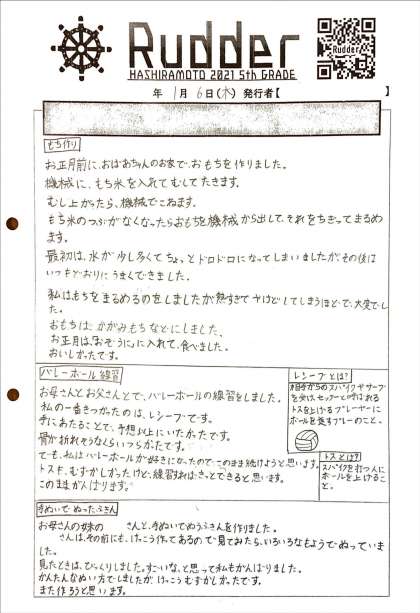 Rudder
HASHIRAMOTO 2021 5th GRADE
Rudder
年 1月 6日(木) 発行者【 】
もち作り
お正月前に、おばあちゃんのお家で、おもちを作りました。
機械に、もち米を入れてむしてたきます。
むし上がったら、機械でこねます。
もち米のつぶがなくなったらおもちを機械から出して、それをちぎってまるめ
ます。
最初は、水が少し多くてちょっとドロドロになってしまいましたが、その後は
いつもどおりにうまくできました。
私はもちをまるめるのをしましたが熱すぎてやけどしてしまうほどで、大変でし
た。
おもちは、かがみもちなどにしました。
お正月は「おぞうに」に入れて、食べました。
おいしかったです。
バレーホール練習
お母さんとお父さんとで、バレーホールの練習をしました。
私の一番きつかたのは、レシーブです。
手にあたることで、予想以上にいたかったです。
骨が折れそうなくらいつらかたです。
ても、私はバレーホールが好きになったのでこのまま続けようと思います。
トスも、むずかしかったけど、練習すればきっとできると思います。
このままがんばります。
レシーブとは?
相手からのスパイクやサーブ
を受け、セッターと呼ばれる
トスを上げるプレーヤーに
ボールを返すプレーのこと。
トスとは?
スパイクを打つ人に
ボールを上げるこ
と。
手ぬいでぬったふきん
お母さんの妹の さんと、手ぬいでぬうふきんを作りました。
さんは、その前にも、けっこう作てあるので見てみたら、いろいろなもようでぬっていま
した。
見たときは、びっくりしました。すごいな、と思って私もがんばりました。
かんたんなぬい方でしましたが、けっこうむずかしかったです。
また作ろうと思います。